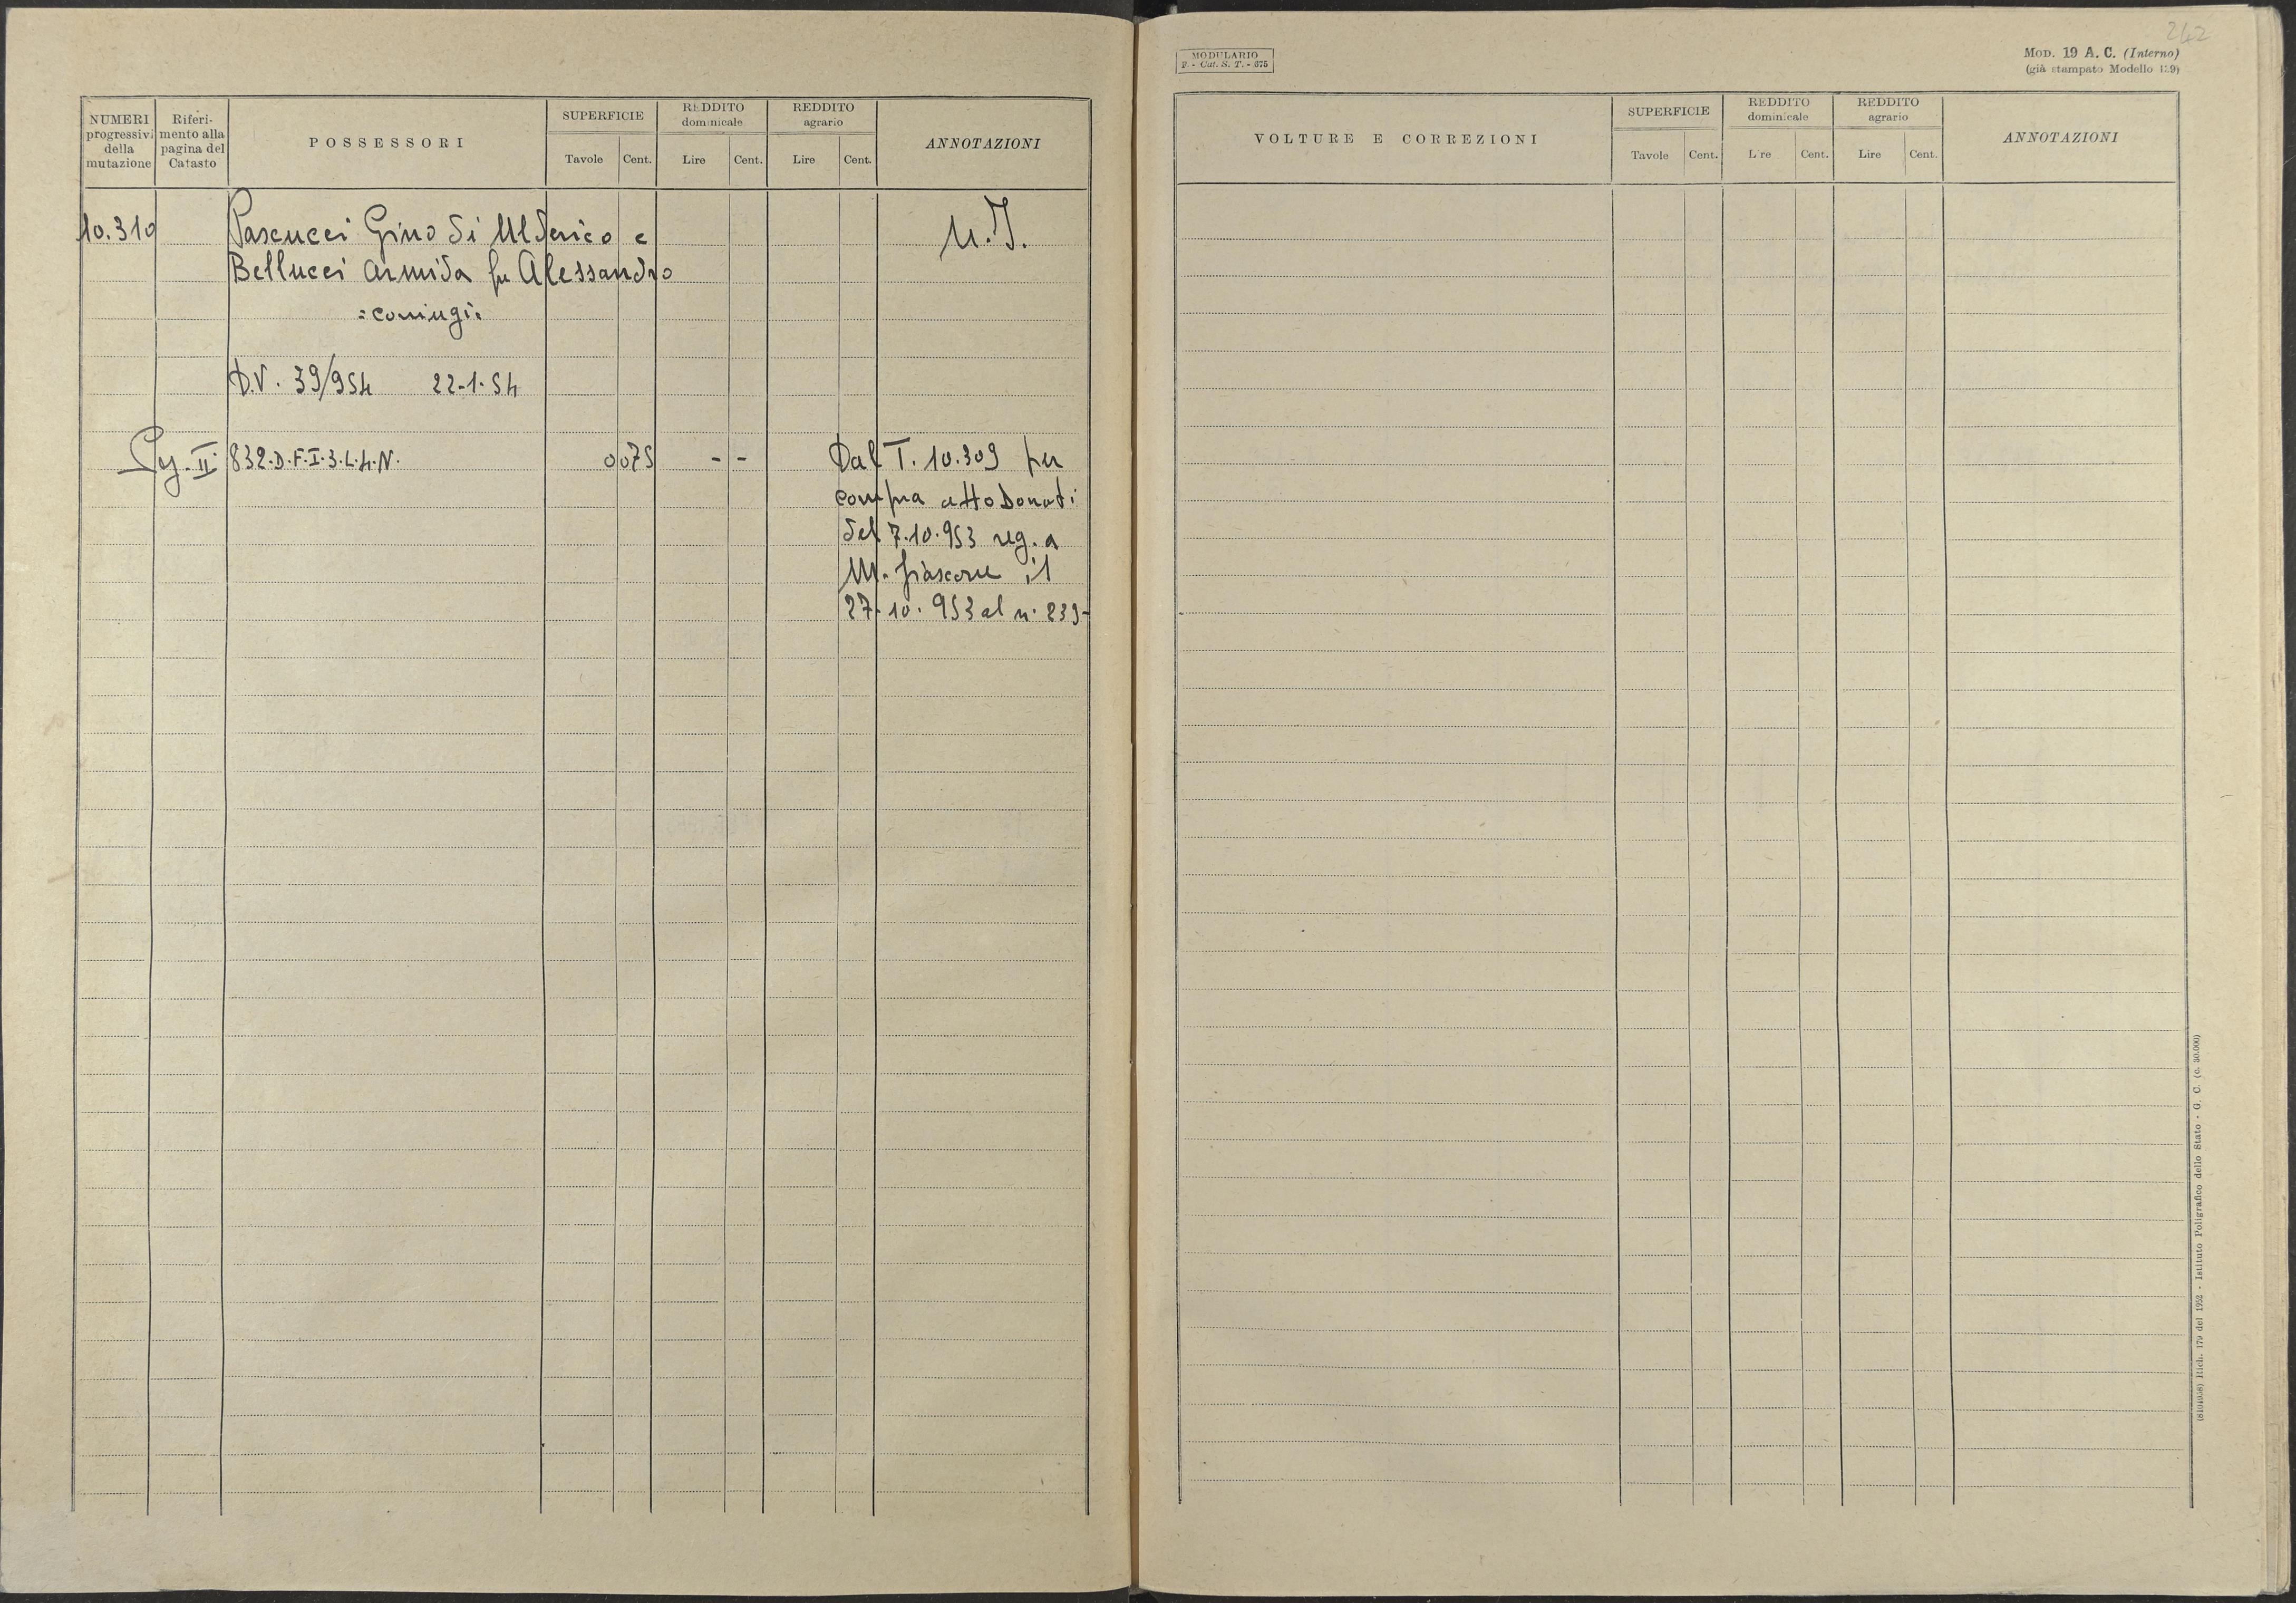 NUMERI progressivi della mutazione
Riferimento alla pagina del Catasto
POSSESSORI
SUPERFICIE
Tavole Cent.
REDDITO dominicale
Lire Cent.
REDDITO agrario
Lire Cent.
ANNOTAZIONI
10.310 Pascucci Gino di Ulderico e
U.I.
Bellucci Armida fu Alessandro
=coniugi=
D.V. 39/954 22-1-54
II 832.D.F.I.3.L.4.N. 0 075 - - Dal T. 10.309 per
compra atto Donati
del 7.10.953 reg. a
M. Fiascone il
27.10.953 al n. 239-
242
MODULARIO
F. - Cat. S. T. - 675
MOD. 19 A. C. (Interno)
(già stampato Modello 139)
VOLTURE E CORREZIONI
SUPERFICIE
Tavole Cent.
REDDITO dominicale
Lire Cent.
REDDITO agrario
Lire Cent.
ANNOTAZIONI
Rich. 179 del 1952 - Istituto Poligrafico dello Stato - G. C. (c. 30.000)